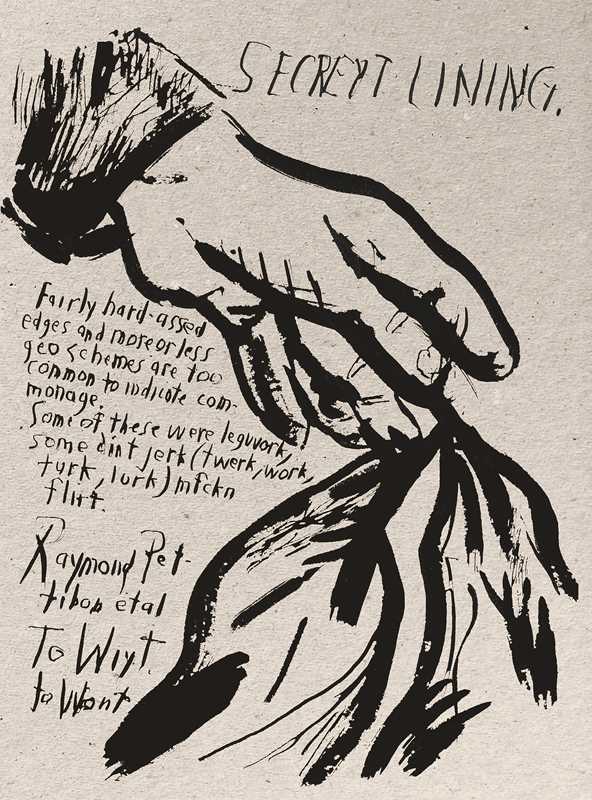 SECREYT LINING.
Fairly hard-assed
edges and more or less
geo schemes are too
common to indicate com-
monage.
Some of these were legwork,
some dint jerk (twerk, work,
turk, lurk) mfckn
flirt.
Raymond Pet-
tibon etal
To Wiyt.
to Wont